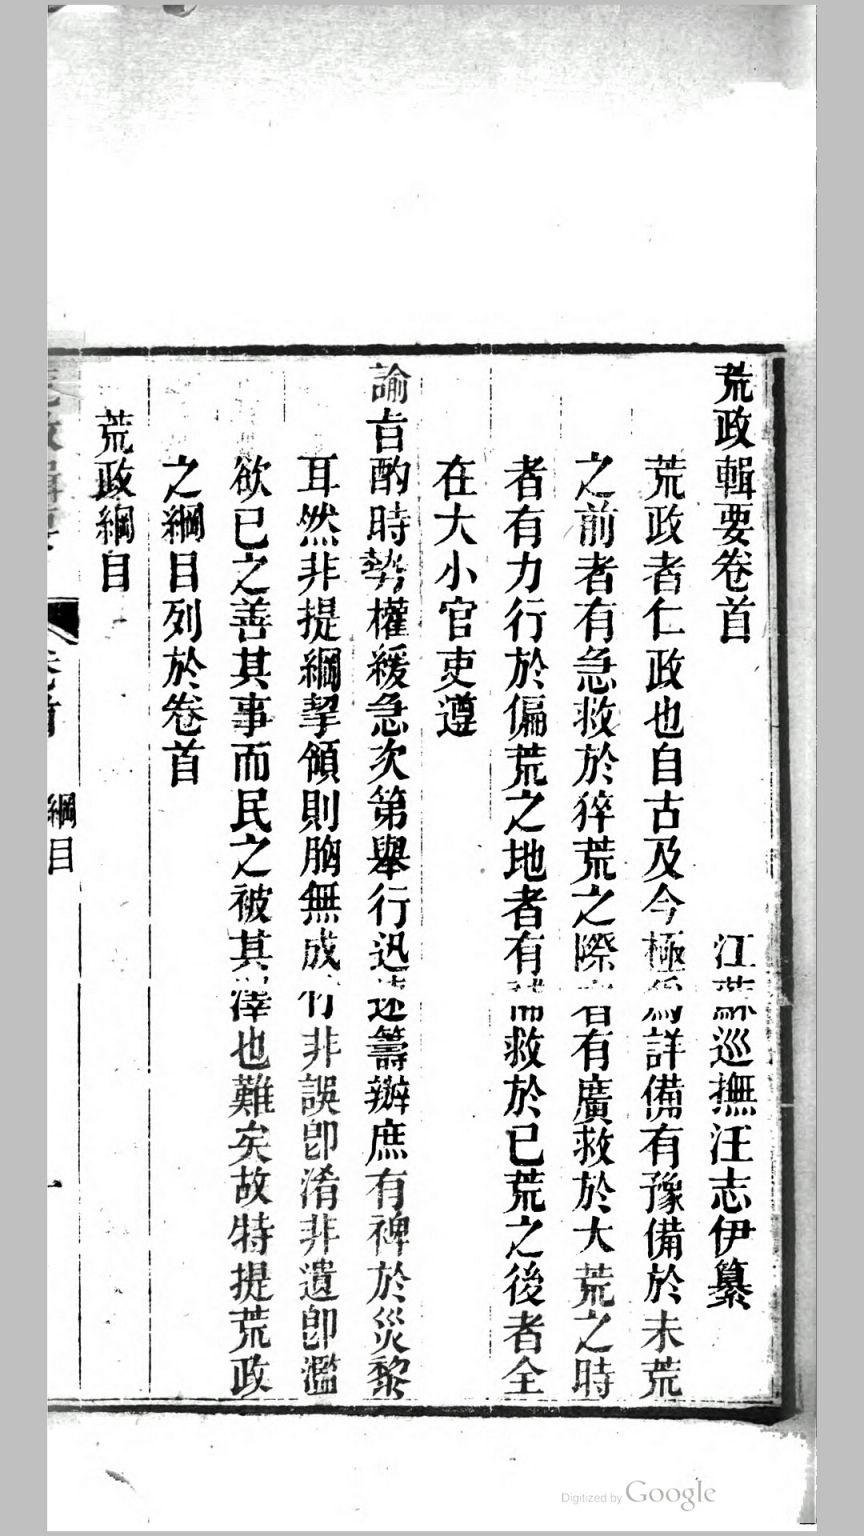 荒政輯要卷首
江蘇巡撫汪志伊纂
荒政者仁政也自古及今極爲詳備有豫備於未荒
之前者有急救於猝荒之際者有廣救於大荒之時
者有力行於偏荒之地者有補救於已荒之後者全
在大小官吏遵
諭旨酌時勢權緩急次第舉行迅速籌辦庶有裨於災黎
耳然非提綱挈領則胸無成竹非誤卽淆非遺卽濫
欲已之善其事而民之被其澤也難矣故特提荒政
之綱目列於卷首
荒政綱目
荒政輯要
卷首
綱目
一
Digitized by Google